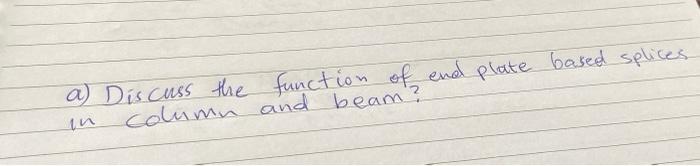 a) Discuss the function of end plate based splices
in column and beam?